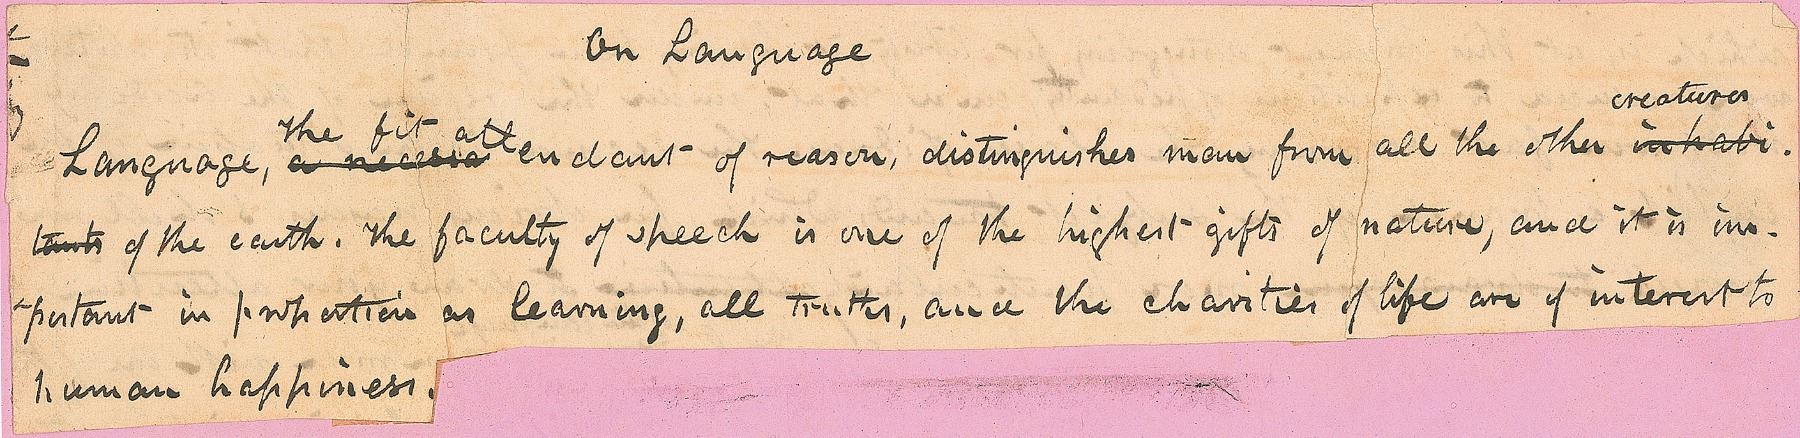 On Language
creatures
the fit att
Language, a necessa endant of reason, distinguishes man from all the other inhabi-
tants of the earth. The faculty of speech is one of the highest gifts of nature, and it is im-
-portant in proportion as learning, all truths, and the charities of life are of interest to
human happiness.